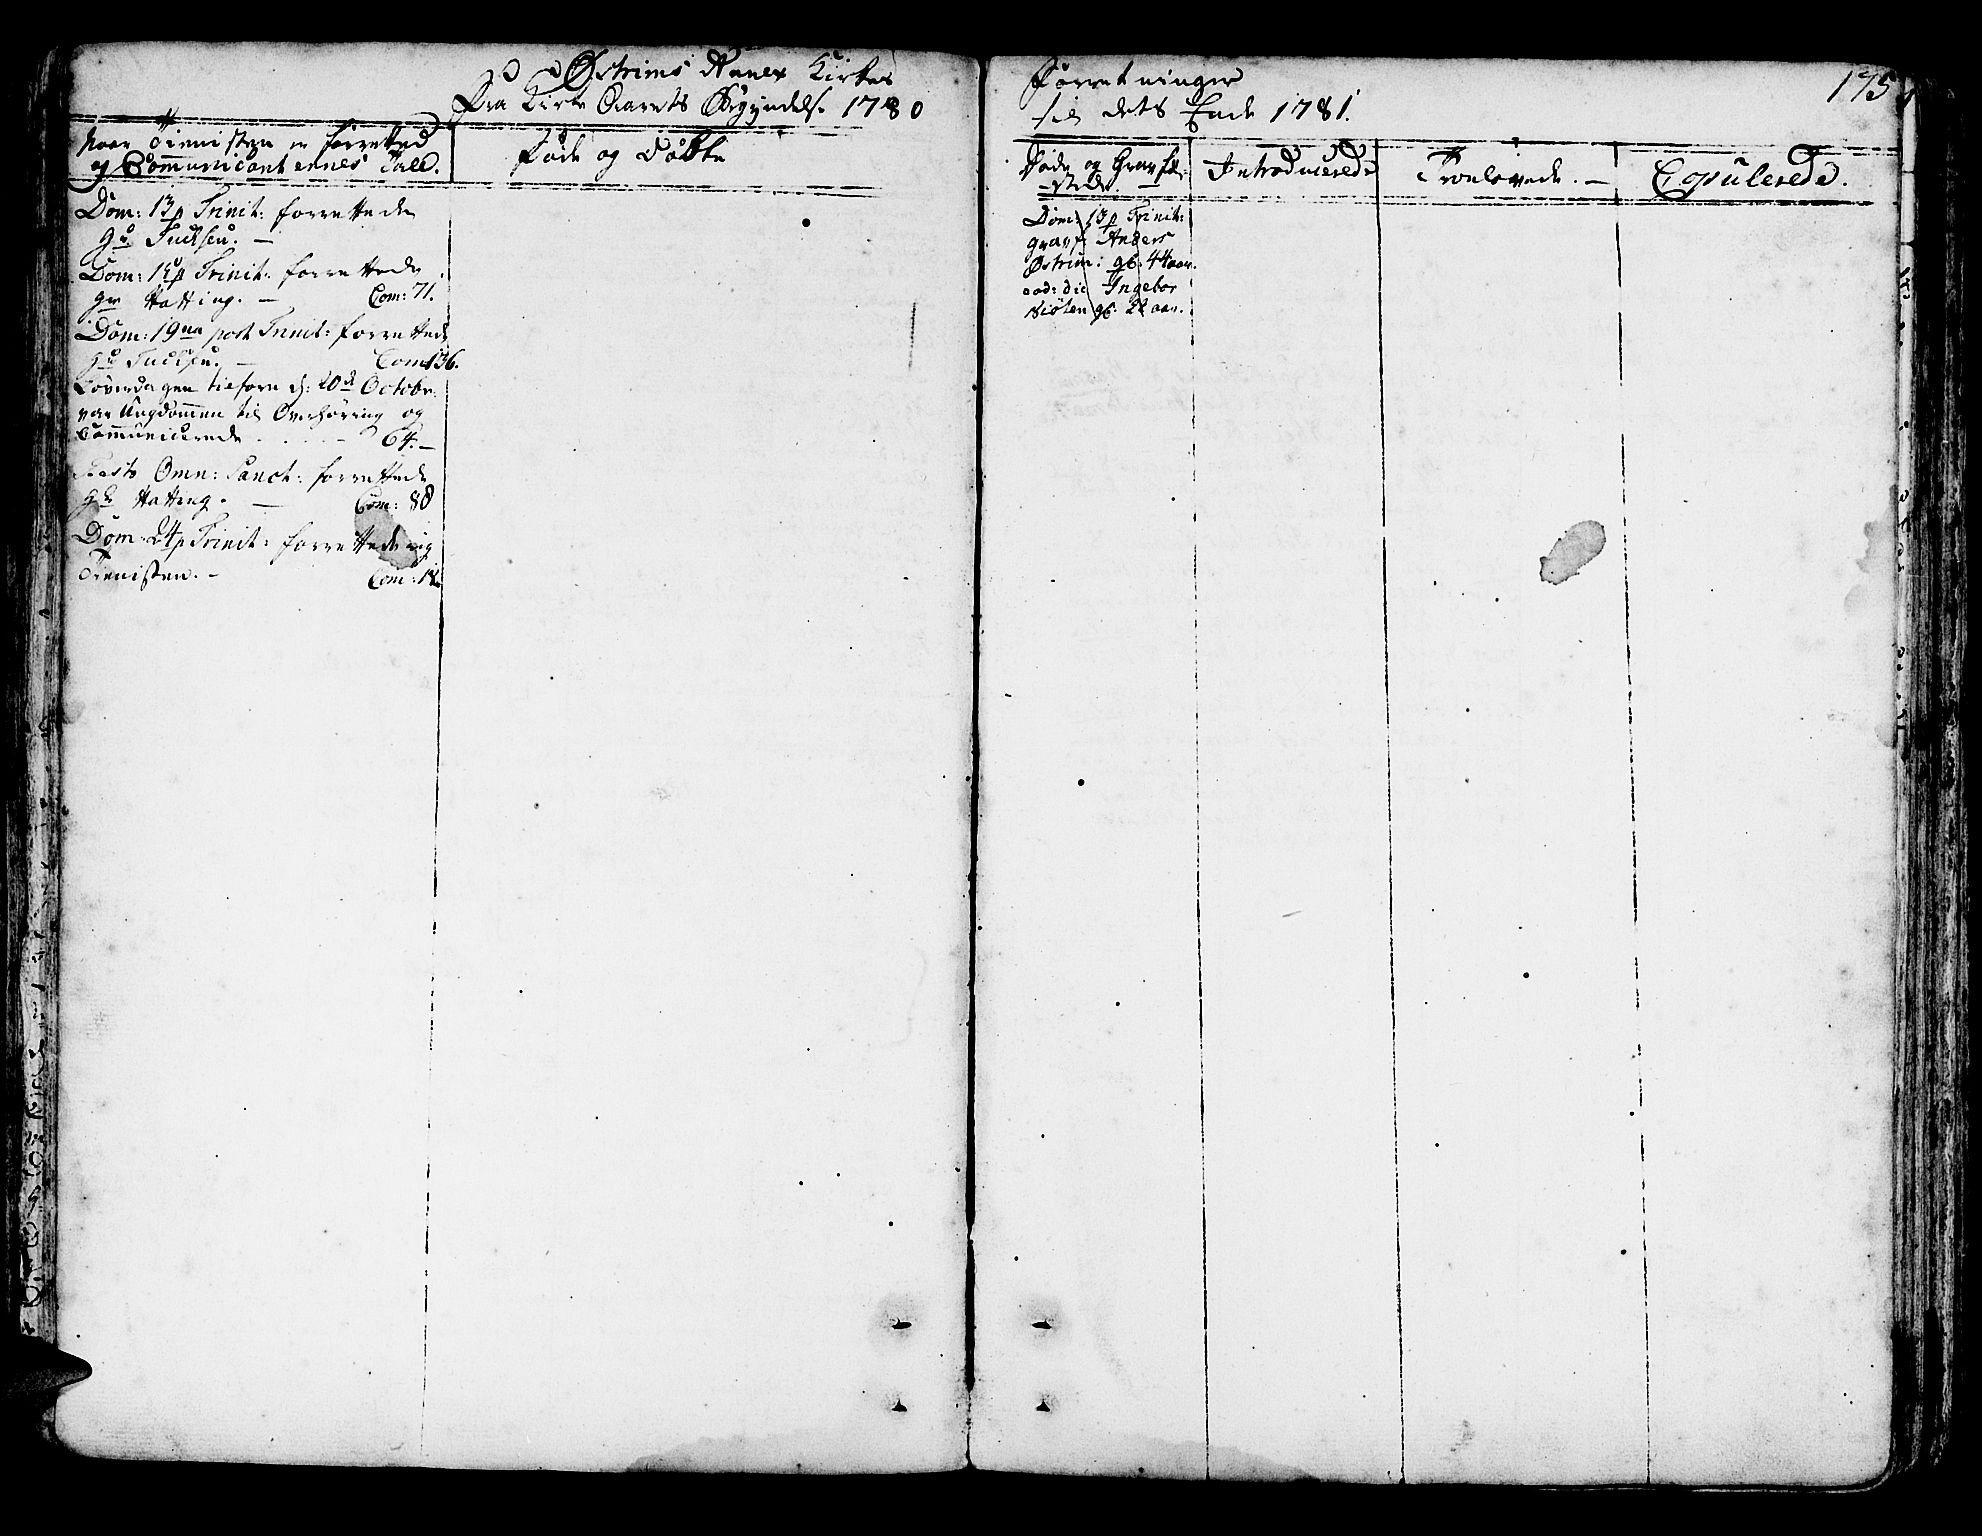 Østrims Annex Kirkes
Fra Kirke Aarets Begyndelse 1780
Forretninger
til dets Ende 1781.
175
Naar Tienisten er forretted
og Communicanternes Tall.
Føde og Døbte
Døde og Grav fæ-
stede.
Introducerede
Troelovede. -
Copulerede.
Dom: 13 p Trinit: forrettede
Hr
Dom: p Trinit: forrettede
Hr Hatting. - Com: 71.
Dom: 19na post Trinit: forrettede
Hr Com 136.
Løverdagen tilforn d: 20de Octobr:
var Ungdommen til Overhøring og
Communicerede - 64. -
Festo Omn: Sanct: forrettede
Hr Hatting. - Com: 80
Dom: 24 p Trinit: forrettede ieg
Tienisten. - Com:
Dom: 13 p Trinit:
gravf: Anders
Østrim: gl. 44 aar.
Ingebor
gl. 22 aar.